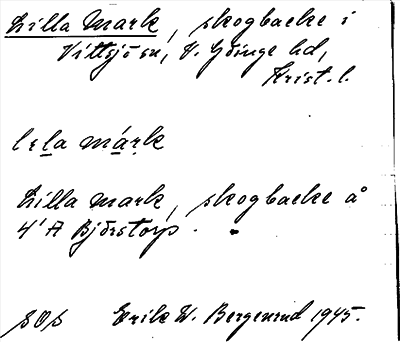 Lilla Mark, skogbacke i
Vittsjö sn, V. Göinge hd,
Krist. l.
lɛla márk
Lilla mark, skogbacke å
4¹ A Björstorp.
SOS Erik W. Bergenrud 1945.